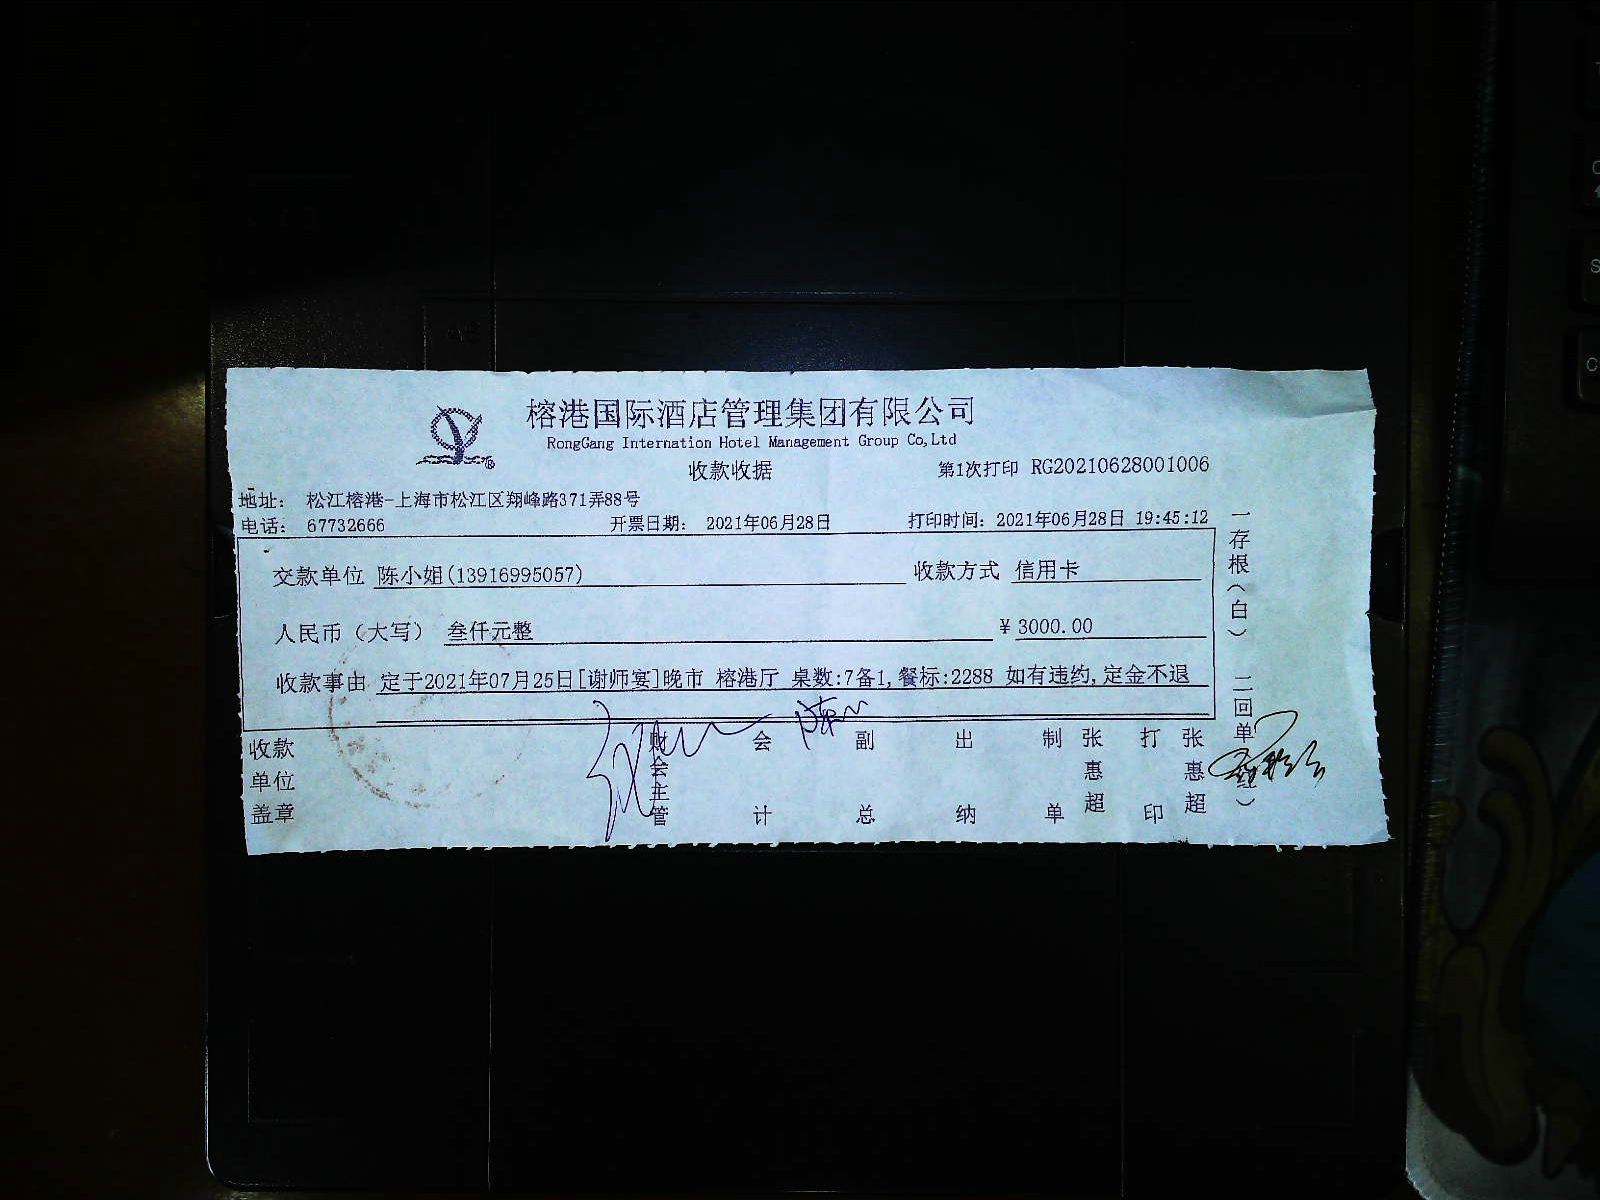 榕港国际酒店管理集团有限公司
RongGang Internation Hotel Management Group Co,Ltd
收款收据
第1次打印 RG20210628001006
地址： 松江榕港-上海市松江区翔峰路371弄88号
电话： 67732666 开票日期： 2021年06月28日 打印时间：2021年06月28日 19:45:12
交款单位 陈小姐(13916995057) 收款方式 信用卡
人民币（大写） 叁仟元整 ¥3000.00
收款事由 定于2021年07月25日[谢师宴]晚市 榕港厅 桌数:7备1,餐标:2288 如有违约,定金不退
收款单位盖章
财会主管
会计
副总
出纳
制单
张惠超
打印
张惠超
一存根（白） 二回单（红）